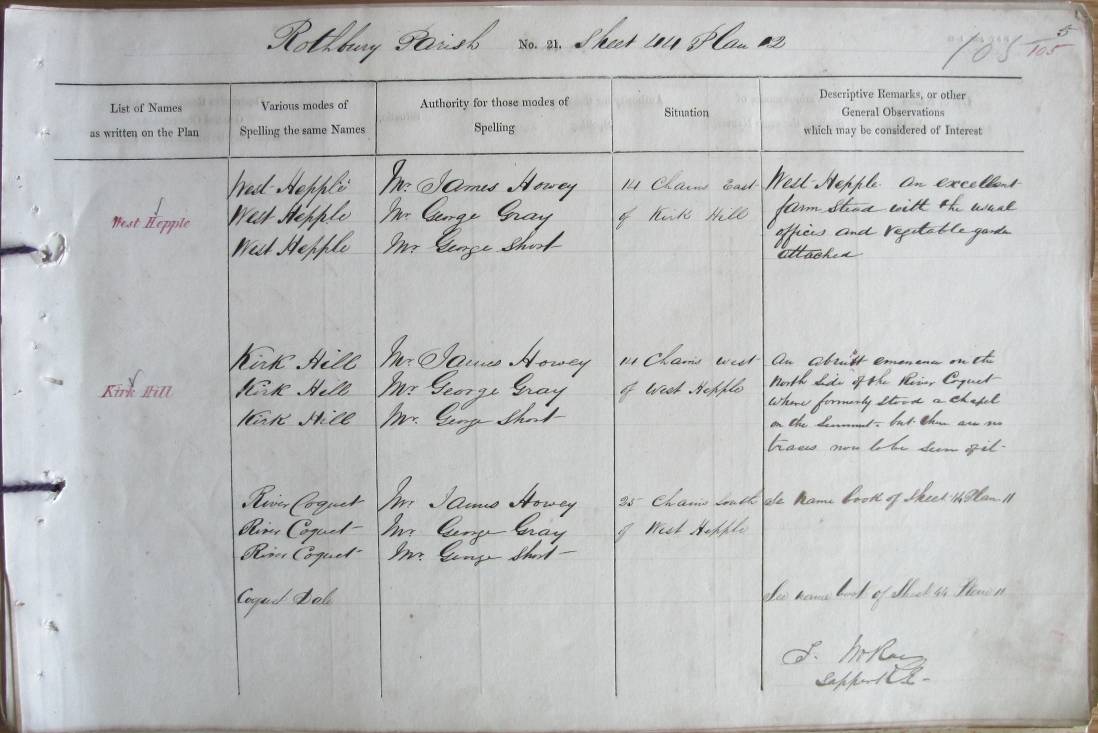 Rothbury Parish No. 21. Sheet 44 Plan 12
105
5
105
List of Names
as written on the Plan
Various modes of
Spelling the same Names
Authority for those modes of
Spelling
Situation
Descriptive Remarks, or other
General Observations
which may be considered of Interest
West Hepple
West Hepple
West Hepple
West Hepple
Mr. James Howey
Mr. George Gray
Mr. George Short
14 Chains East
of Kirk Hill
West Hepple an excellent
farm Stead with the usual
offices and Vegetable garden
attached
Kirk Hill
Kirk Hill
Kirk Hill
Kirk Hill
Mr. James Howey
Mr. George Gray
Mr. George Short
14 Chains west
of West Hepple
An abrupt emenence on the
North Side of the River Coquet
where formerly stood a Chapel
on the Summit but there are no
traces now to be seen of it
River Coquet
River Coquet
River Coquet
Mr. James Howey
Mr. George Gray
Mr. George Short
25 Chains South
of West Hepple
See name book of Sheet 44 Plan 11
Coquet Dale
See name book of Sheet 44 Plan 11
J. McRae
Sapper R.E.